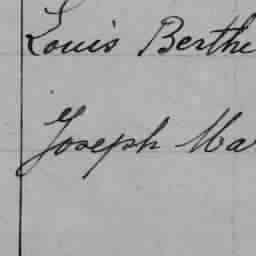 Louis Berthe
Joseph Ma